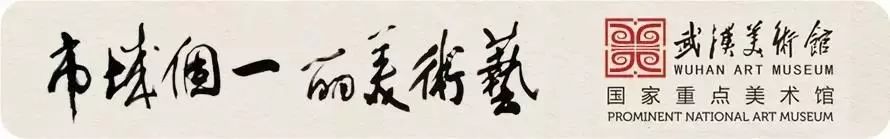 藝術美丽一個城市
武漢美術館
WUHAN ART MUSEUM
国家重点美术馆
PROMINENT NATIONAL ART MUSEUM